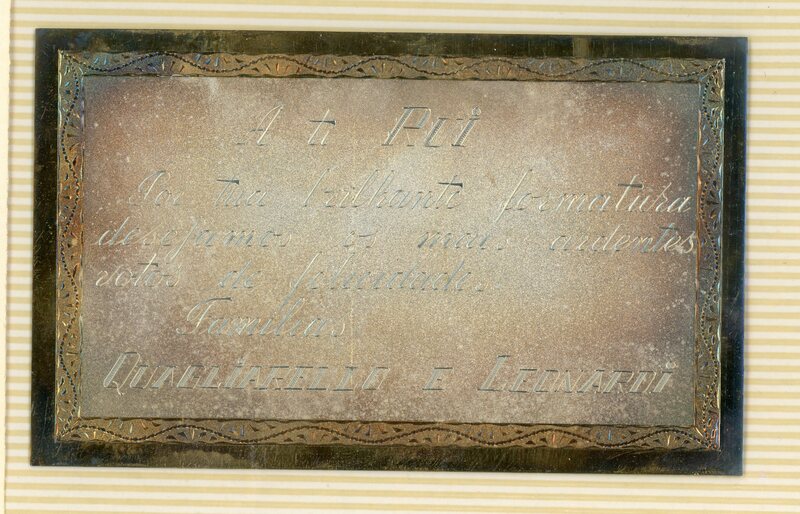 A ti RUI
Por tua brilhante formatura
desejamos os mais ardentes
votos de felicidade.
Famílias
QUAGLIARELLO E LEONARDI